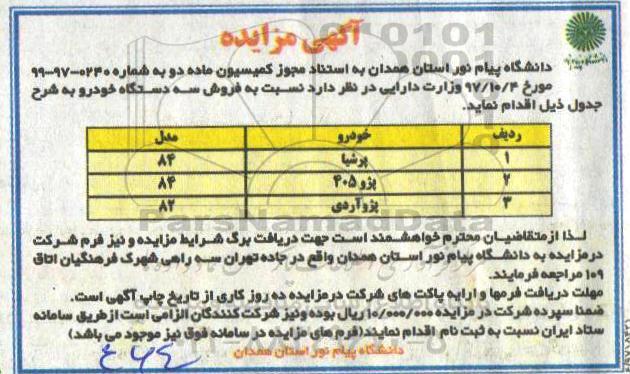 آگهی مزایده
دانشگاه پیام نور استان همدان به استناد مجوز کمیسیون ماده دو به شماره ۰۲۴۰-۹۷-۹۹
مورخ ۹۷/۱۰/۴ وزارت دارایی در نظر دارد نسبت به فروش سه دستگاه خودرو به شرح
جدول ذیل اقدام نماید.
ردیف خودرو مدل
۱ پرشیا ۸۴
۲ پژو ۴۰۵ ۸۴
۳ پژو آردی ۸۲
ParsNamadData
لذا از متقاضیان محترم خواهشمند است جهت دریافت برگ شرایط مزایده و نیز فرم شرکت
در مزایده به دانشگاه پیام نور استان همدان واقع در جاده تهران سه راهی شهرک فرهنگیان اتاق
۱۰۹ مراجعه فرمایند.
مهلت دریافت فرمها و ارایه پاکت های شرکت در مزایده ده روز کاری از تاریخ چاپ آگهی است.
ضمنا سپرده شرکت در مزایده ۱۰/۰۰۰/۰۰۰ ریال بوده و نیز شرکت کنندگان الزامی است از طریق سامانه
ستاد ایران نسبت به ثبت نام اقدام نمایند(فرم های مزایده در سامانه فوق نیز موجود می باشد)
دانشگاه پیام نور استان همدان